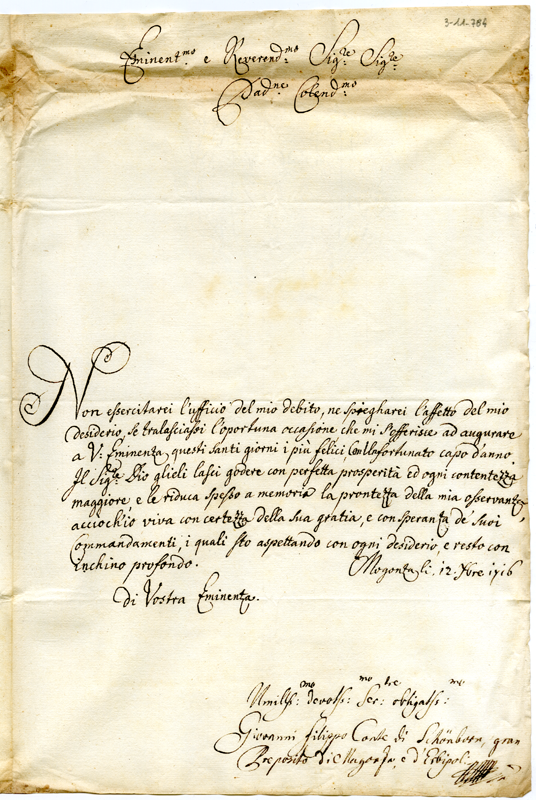 3-11.784
Eminent:mo e Reverend:mo Sig:re Sig:re
Pad:ne Colend:mo
Non essercitarei l'ufficio del mio debito, ne spiegharei l'affetto del mio
desiderio, se tralasciassi l'oportuna occasione che mi s'offerisce ad augurare
a V: Eminenza, questi Santi giorni i più felici con un fortunato capo d'anno
Il Sig:re Dio glieli lasci godere con perfetta prosperità ed ogni contentezza
maggiore, e le riduca spesso a memoria la prontezza della mia osservanza,
acciochio viva con certezza della sua gratia, e con speranza de suoi
Commandamenti, i quali sto aspettando con ogni desiderio, e resto con
inchino profondo.
Mogonza li, 12. Xbre 1716
di Vostra Eminenza.
Umilss:mo devotss:mo Ser:re obligatss:mo
Giovanni Filippo Conte di Schönborn, gran
Preposito di Magonza, e d'Erbipoli